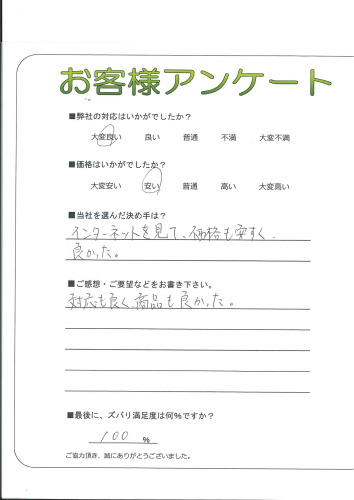 お客様アンケート
■弊社の対応はいかがでしたか？
大変良い 良い 普通 不満 大変不満
■価格はいかがでしたか？
大変安い 安い 普通 高い 大変高い
■当社を選んだ決め手は？
インターネットを見て、価格も安すく
良かった。
■ご感想・ご要望などをお書き下さい。
対応も良く商品も良かった。
■最後に、ズバリ満足度は何%ですか？
100 %
ご協力頂き、誠にありがとうございました。